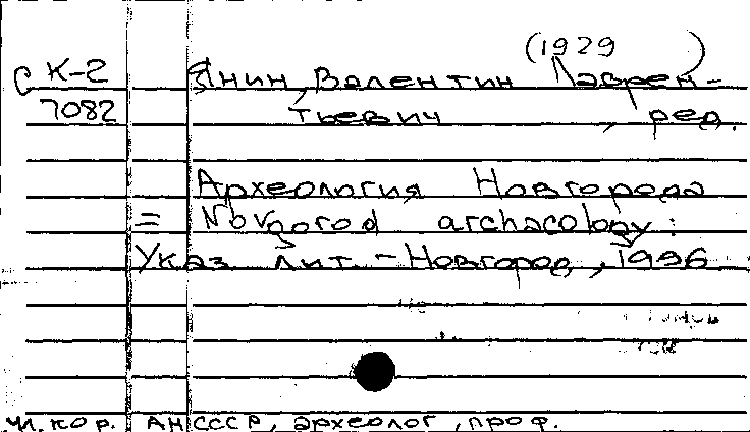 (1929 )
С К-2 Янин, Валентин Лаврен-
7082 тьевич, ред.
Археология Новгорода
= Novgorod archaeology:
Указ. лит. - Новгород, 1996
чл. кор. АН СССР, археолог, проф.